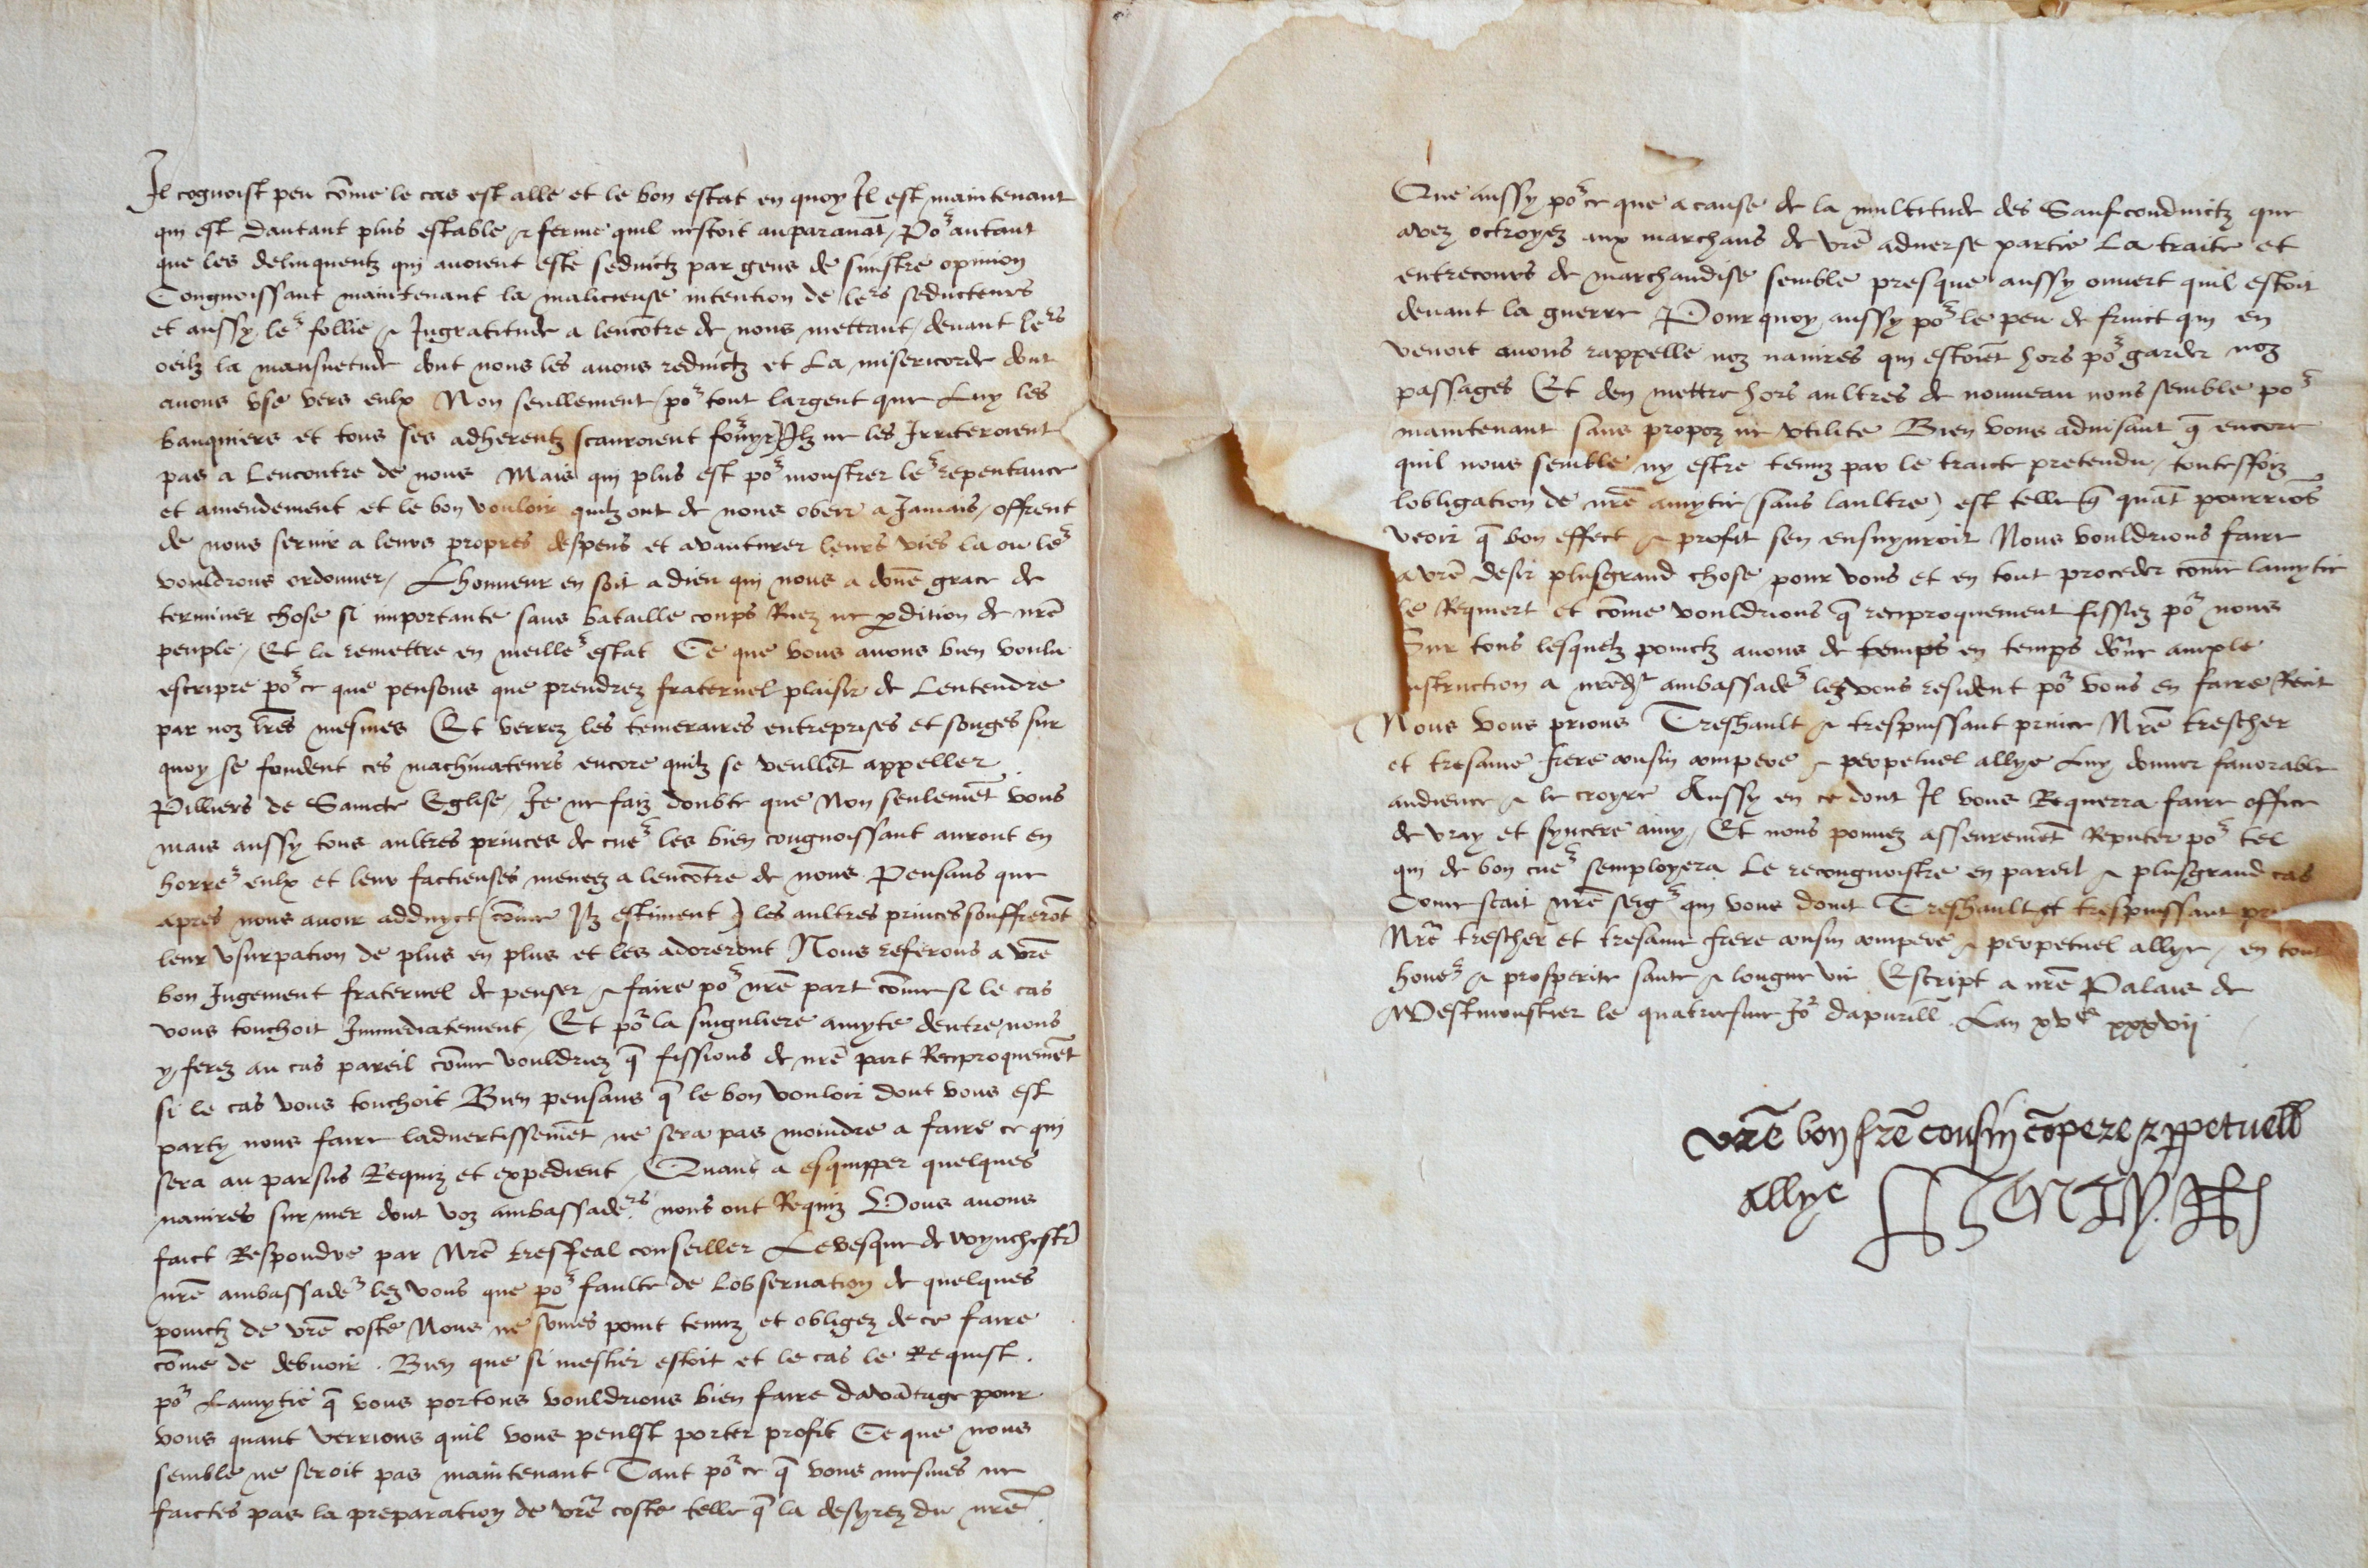 Il cognoist peu cōme le cas est alle et le bon estat en quoy Il est maintenant
qui est dautant plus estable & ferme quil nestoit auparauāt, Por autant
que les delinquentz qui auoient este seduictz par gens de sinistre opinion
Congnoissant maintenant la malicieuse intention de lers seducteurs
et aussy ler follie & Ingratitude a lencōtre de nous mettant, deuant lers
oeilz la mansuetude dont nous les auons reduictz et La misericorde dont
auons vse vers eulx Non seullement, por tout largent que Luy les
banquiers et tous ses adherentz scauroient forñyr, Ilz ne les Irriteroient
pas a Lencontre de nous Mais qui plus est por monstrer ler repentance
et amendement et le bon vouloir quilz ont de nous obeir a Jamais, offrent
de nous seruir a leurs propres despens et avanturer leurs vies la ou les
vouldrons ordonner, Lhonneur en soit a dieu qui nous a dōne grace de
terminer chose si importante sans bataille coups Ruez ne p̱dition de nrē
peuple, Et la remettre en meiller estat Ce que vous auons bien voulu
escripre por ce que pensons que prendrez fraternel plaisir de Lentendre
par noz lrēs mesmes Et verrez les temeraires entreprises et songes sur
quoy se fondent ces machinateurs encore quilz se veullēt appeller
Pilliers de Saincte Eglise, Je ne faiz doubte que Non seulemēt vous
mais aussy tous aultres princes de cuer les bien congnoissant auront en
horrer eulx et leur factieuses meneez a lencōtre de nous Pensans que
apres nous auoir adduyct (cōme Ilz estiment) les aultres princes souffrerōt
leur vsurpation de plus en plus et les adoreront Nous referons a vrē
bon Jugement fraternel de penser & faire por nrē part cōme si le cas
vous touchoit Immediatement, Et por la singuliere amyte dentre nous
y ferez au cas pareil cōme vouldriez q̄ fissions de nrē part Reciproquemēt
si le cas vous touchoit Bien pensans q̄ le bon vouloir dont vous est
party nous faire laduertissemēt ne sera pas moindre a faire ce qui
sera au parsus Requiz et expedient, Quant a esquipper quelques
nauires sur mer dont voz ambassaders nous ont Requiz Vous auons
faict Respondre par Nrē tresfeal conseiller Levesque de Wynchestr̄
nrē ambassader lez vous que por faulte de Lobseruation de quelques
poinctz de vrē coste Nous ne sōmes point tenuz et obligez de ce faire
cōme de debuoir . Bien que si mestier estoit et le cas le Requist .
por Lamytie q̄ vous portons vouldrions bien faire davātage pour
vous quant verrions quil vous peulst porter profit Ce que nous
semble ne seroit pas maintenant Tant por ce q̄ vous mesmes ne
faictes pas la preparation de vrē coste telle q̄ la desyrez du nrē.
Que aussy por ce que a cause de la multitude des Saufconduictz que
avez octroyez aux marchans de vrē aduerse partie La traite et
entrecours de marchandise semble presque aussy ouuert quil estoit
deuant la guerre Pourquoy, aussy por le peu de fruict qui en
venoit auons rappelle noz nauires qui estoiēt hors por garder noz
passages Et den mettre hors aultres de nouueau nous semble por
maintenant sans propoz ne vtilite Bien vous aduisant q̄ encore
quil nous semble ny estre tenuz par le traicte pretendu, toutesffoiz
lobligation de nrē amytie (sans laultre) est telle q̄ quāt pourriōs
veoir q̄ bon effect & profit sen ensuyuroit Nous vouldrions faire
a vrē desir plusgrand chose pour vous et en tout proceder cōme lamytie
le Requiert et cōme vouldrions q̄ reciproquement fissiez por nous
Sur tous lesquelz poinctz auons de temps en temps dōne ample
nstruction a nrēdt ambassader lez vous resident por vous en faire Recit
Nous vous prions Treshault & trespuissant prince Nrē trescher
et tresame frere cousin compere & perpetuel allye Luy donner fauorable
audience & le croyre Aussy en ce dont Il vous Requerra faire office
de vray et syncere amy, Et nous pouuez asseuremēt Reputer por tel
qui de bon cuer semployera Le recongnoistre en pareil & plusgrand cas
Cōme scait nrē seigr qui vous doint Treshault et trespuissant pr
Nrē trescher et tresame frere cousin compere & perpetuel allye, en tout
honer & prosperite sante & longue vie Escript a nrē Palais de
Westmonstier le quatriesme Jor dapuril Lan xvc xxxvij
vrē bon frē cousin cōpere & ꝑpetuell
allye HENRY. R